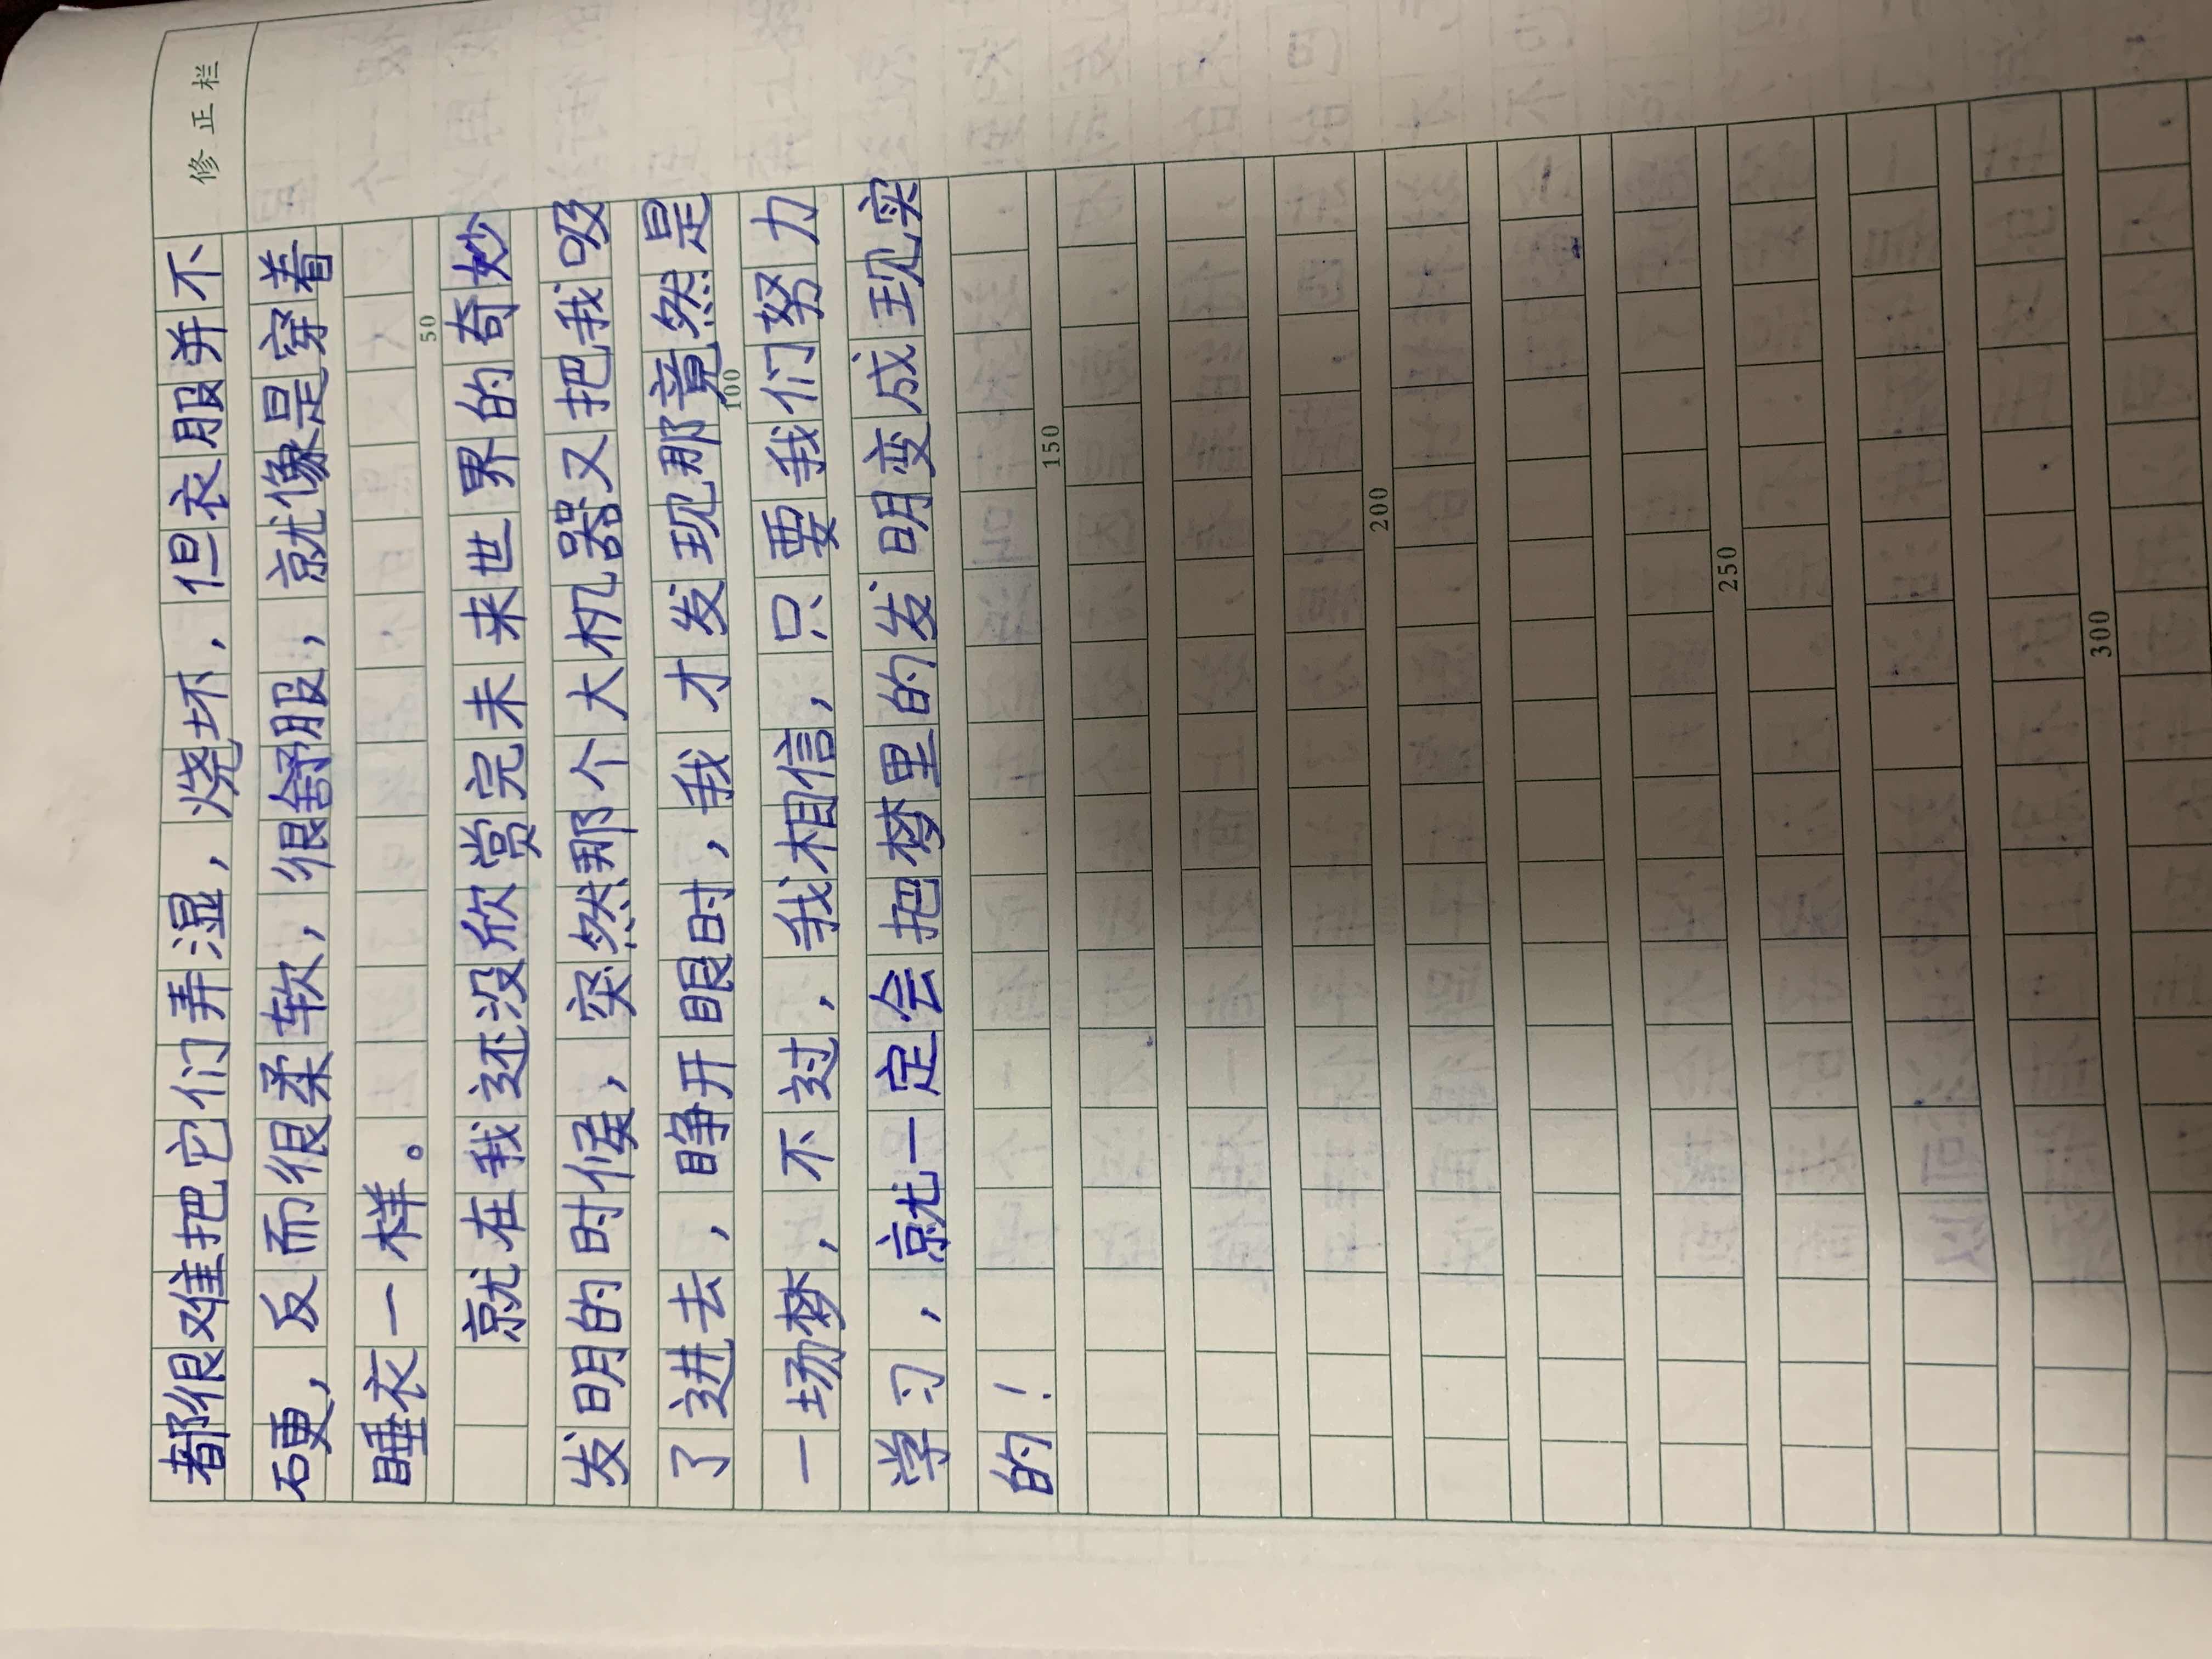 修正栏
都很难把它们弄湿，烧坏，但衣服并不
硬，反而很柔软，很舒服，就像是穿着
睡衣一样。
50
就在我还没欣赏完未来世界的奇妙
发明的时候，突然那个大机器又把我吸
了进去，睁开眼时，我才发现那竟然是
100
一场梦，不过，我相信，只要我们努力
学习，就一定会把梦里的发明变成现实
的！
150
200
250
300